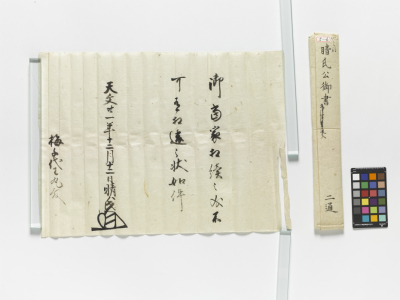 御當家相續之者不
可有相違之状如件
天文廿一年十二月廿一日晴氏
梅千代王丸殿
晴氏公御書
二通